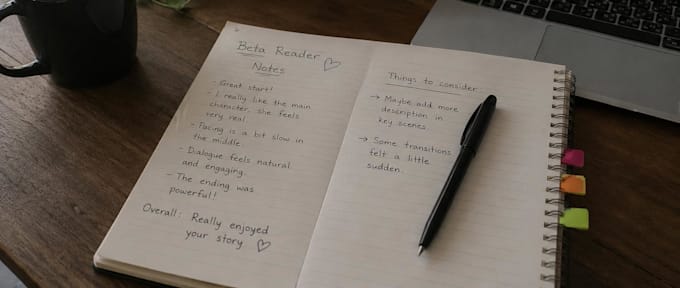 Beta Reader
Notes
- Great start!
- I really like the main
character, she feels
very real.
- Pacing is a bit slow in
the middle.
- Dialogue feels natural
and engaging.
- The ending was
powerful!
Overall: Really enjoyed
your story ♡
Things to consider
→ Maybe add more
description in
key scenes.
→ Some transitions
felt a little
sudden.